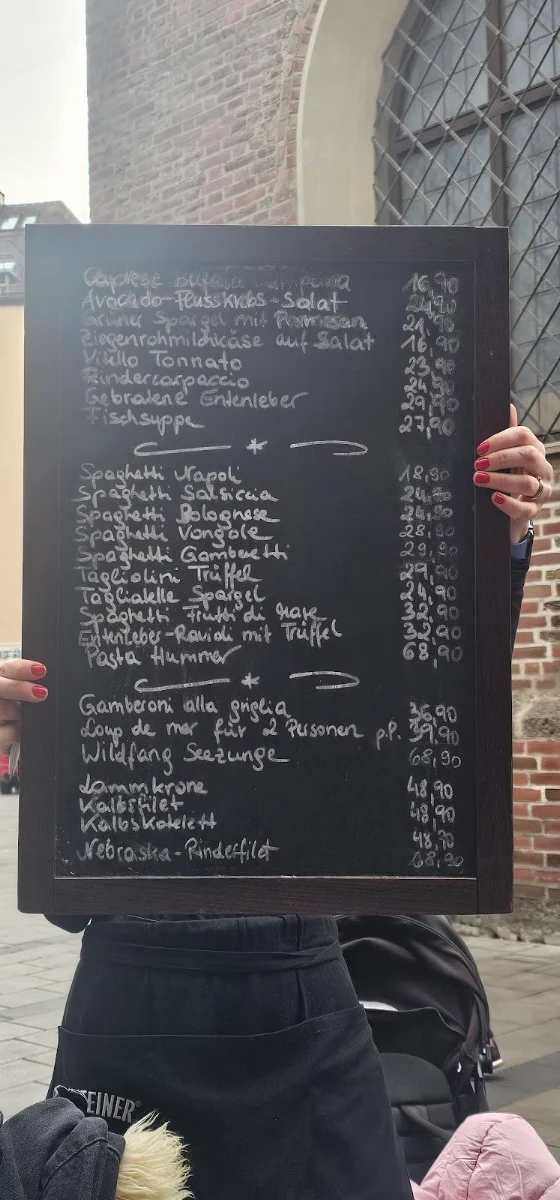 Caprese bufala
16,90
Avocado-Flusskrebs-Salat 24,90
Grüner Spargel mit Parmesan 21,90
Ziegenrohmilchkäse auf Salat 16,90
Vitello Tonnato 23,90
Rindercarpaccio 24,90
Gebratene Entenleber 29,90
Fischsuppe 27,90
Spaghetti Napoli 18,90
Spaghetti Salsiccia 24,90
Spaghetti Bolognese 24,90
Spaghetti Vongole 28,90
Spaghetti Gamberetti 29,90
Tagliolini Trüffel 29,90
Tagliatelle Spargel 24,90
Spaghetti Frutti di Mare 32,90
Entenleber-Ravioli mit Trüffel 32,90
Pasta Hummer 68,90
Gamberoni alla griglia 36,90
Loup de mer für 2 Personen p.P. 39,90
Wildfang Seezunge 68,90
Lammkrone 48,90
Kalbsfilet 48,90
Kalbskotelett 48,90
Nebraska-Rinderfilet 68,90